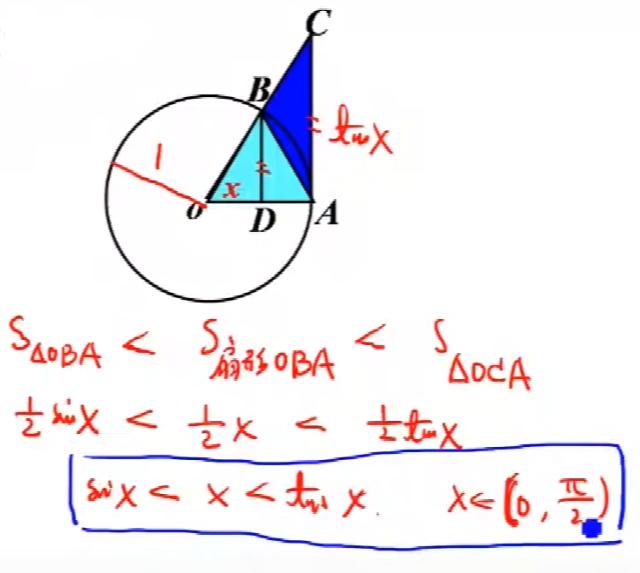 C
B
= tan X
1
x =
O D A
S△OBA < S扇形OBA < S△OCA
1/2 sin X < 1/2 X < 1/2 tan X
sin X < X < tan X. X∈(0, π/2)